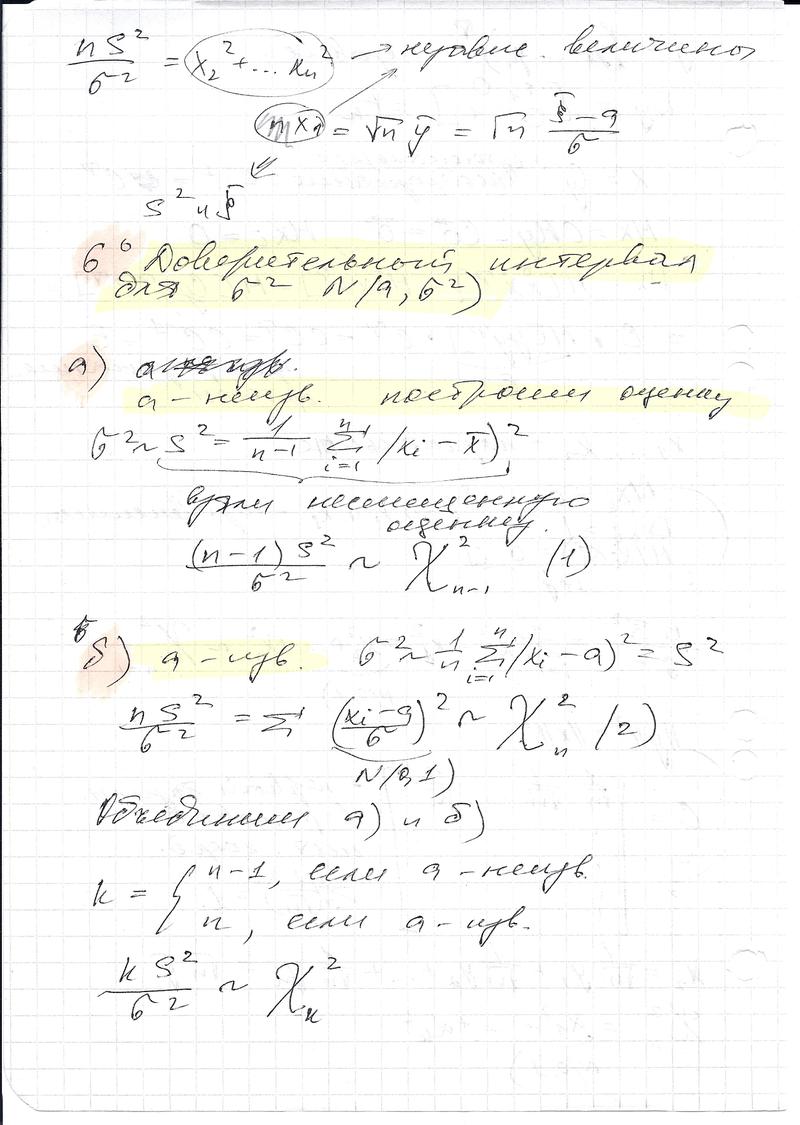 nS²/σ² = x₂² + ... xₙ² → независ. величины
x₁ = √n ȳ = √n (ξ̄ − a)/σ
S² и ξ̄
6⁶ Доверительный интервал
для σ² N(a, σ²)
а)
a − неизв. построим оценку
σ² ~ S² = 1/(n−1) Σⁿᵢ₌₁ (xᵢ − x̄)²
взяли несмещенную
оценку.
(n−1)S²/σ² ~ χ²ₙ₋₁ (1)
б) a − изв. σ² ~ 1/n Σⁿᵢ₌₁ (xᵢ − a)² = S²
nS²/σ² = Σ ((xᵢ − a)/σ)² ~ χ²ₙ (2)
N(0,1)
Объединим а) и б)
k = { n−1, если a − неизв.
n, если a − изв.
kS²/σ² ~ χ²ₖ